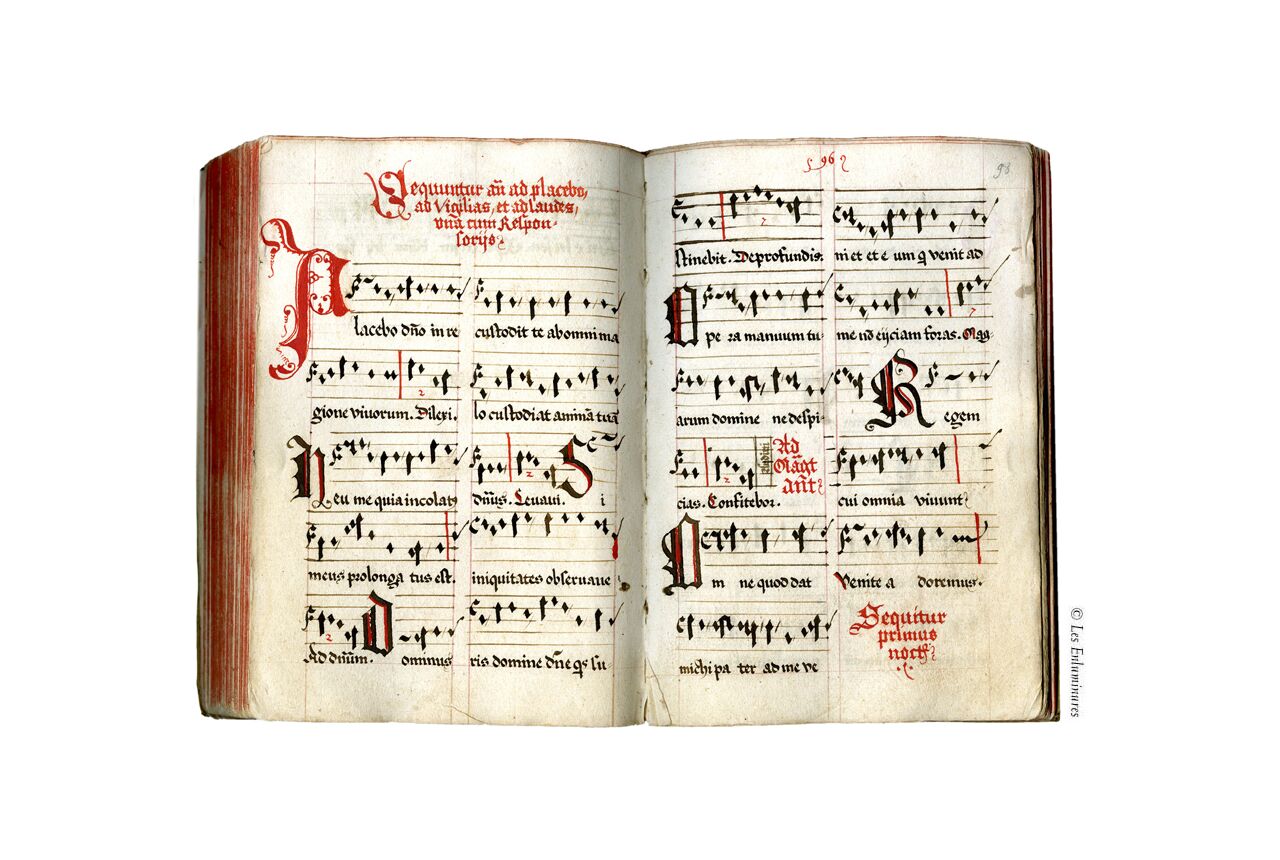 Sequuntur añ ad placebo,
ad Vigilias, et ad laudes,
vna cum Respon-
sorijs
Placebo dño in re
gione viuorum. Dilexi.
Heu me quia incolat9
meus prolonga tus est.
Ad dñum. Dominus
custodit te ab omni ma
lo custodiat animã tuã
dñus. Leuaui. Si
iniquitates obseruaue
ris domine dñe qs su-
96
98
stinebit. De profundis.
Opera manuum tu-
arum domine ne despi-
cias. Confitebor.
Ad
Mãgt
Añt
Om ne quod dat
michi pa ter ad me ve
niet et e um q venit ad
me nõ eijciam foras. Mag
Regem
cui omnia viuunt
Venite a doremus.
Sequitur
primus
noct
© Les Enluminures